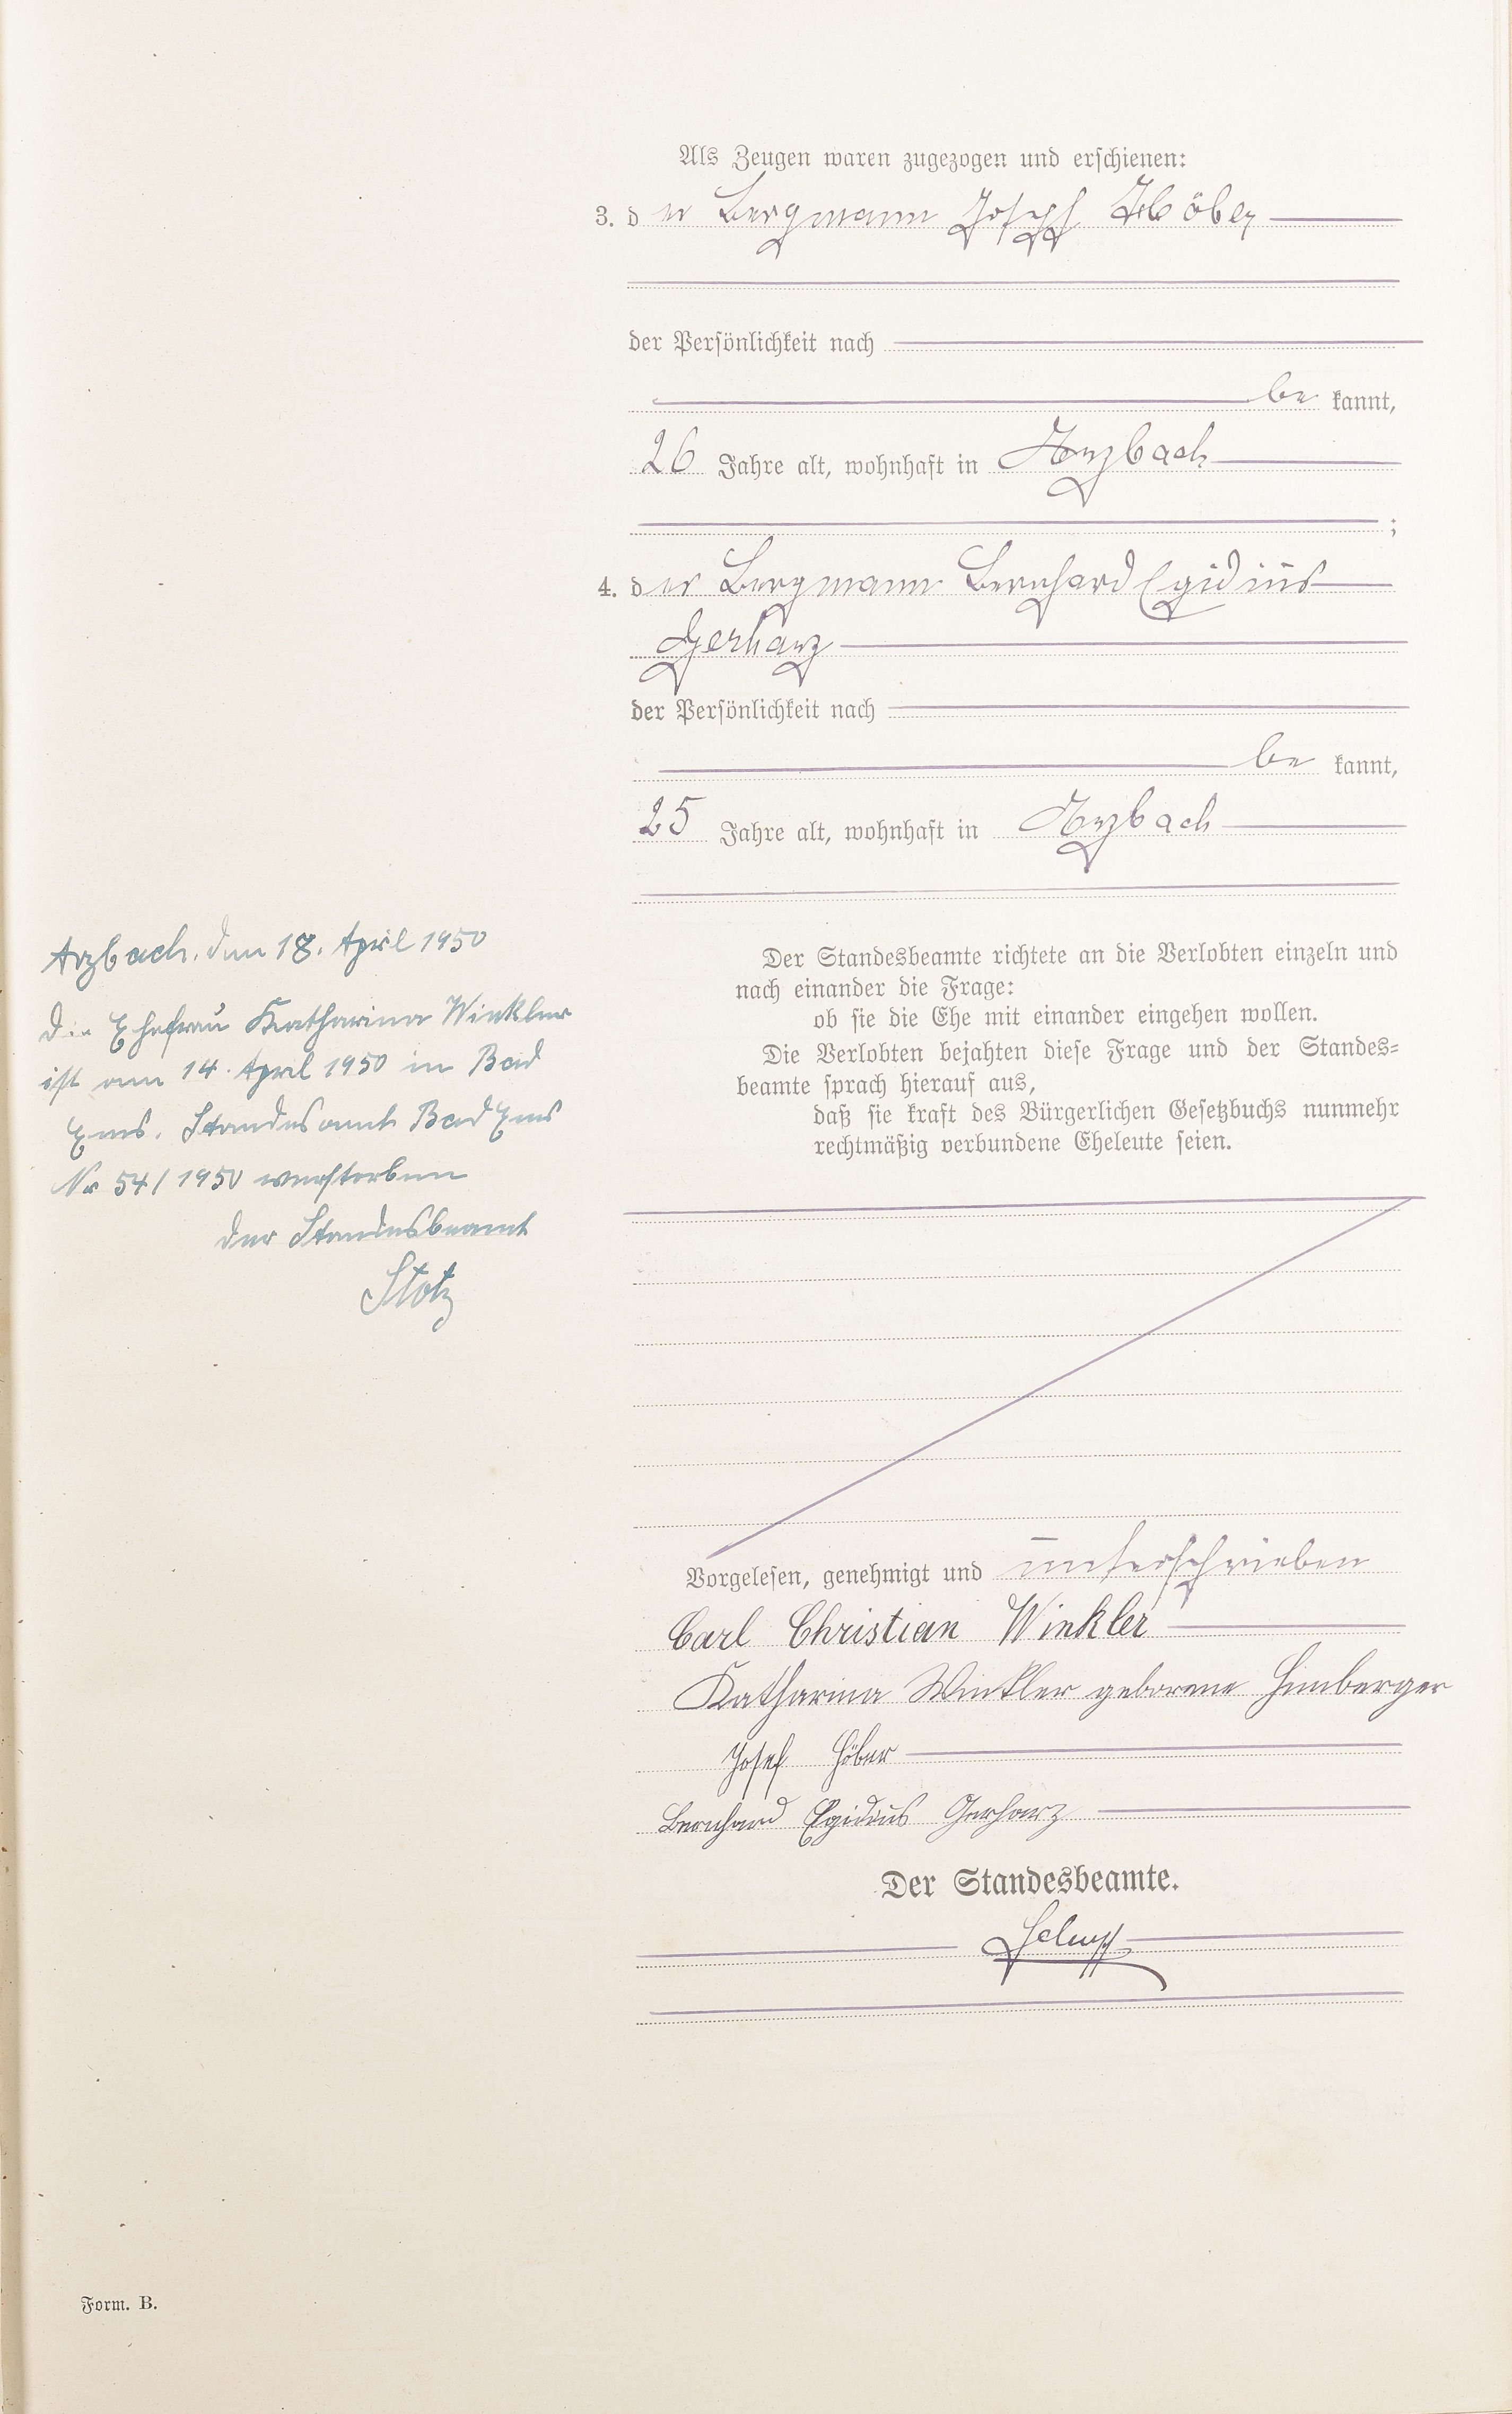 Als Zeugen waren zugezogen und erschienen:
3. der Bergmann Joseph Höber
der Persönlichkeit nach
be kannt,
26 Jahre alt, wohnhaft in Arzbach
;
4. der Bergmann Bernhard Egidius
Gerharz
der Persönlichkeit nach
be kannt,
25 Jahre alt, wohnhaft in Arzbach
Arzbach, den 18. April 1950
Die Ehefrau Katharina Winkler
ist am 14. April 1950 in Bad
Ems. Standesamt Bad Ems
Nr 54/1950 verstorben
Der Standesbeamt
Stotz
Der Standesbeamte richtete an die Verlobten einzeln und
nach einander die Frage:
ob sie die Ehe mit einander eingehen wollen.
Die Verlobten bejahten diese Frage und der Standes=
beamte sprach hierauf aus,
daß sie kraft des Bürgerlichen Gesetzbuchs nunmehr
rechtmäßig verbundene Eheleute seien.
Vorgelesen, genehmigt und unterschrieben
Carl Christian Winkler
Katharina Winkler geborene Himberger
Josef Höber
Bernhard Egidius Gerharz
Der Standesbeamte.
Form. B.